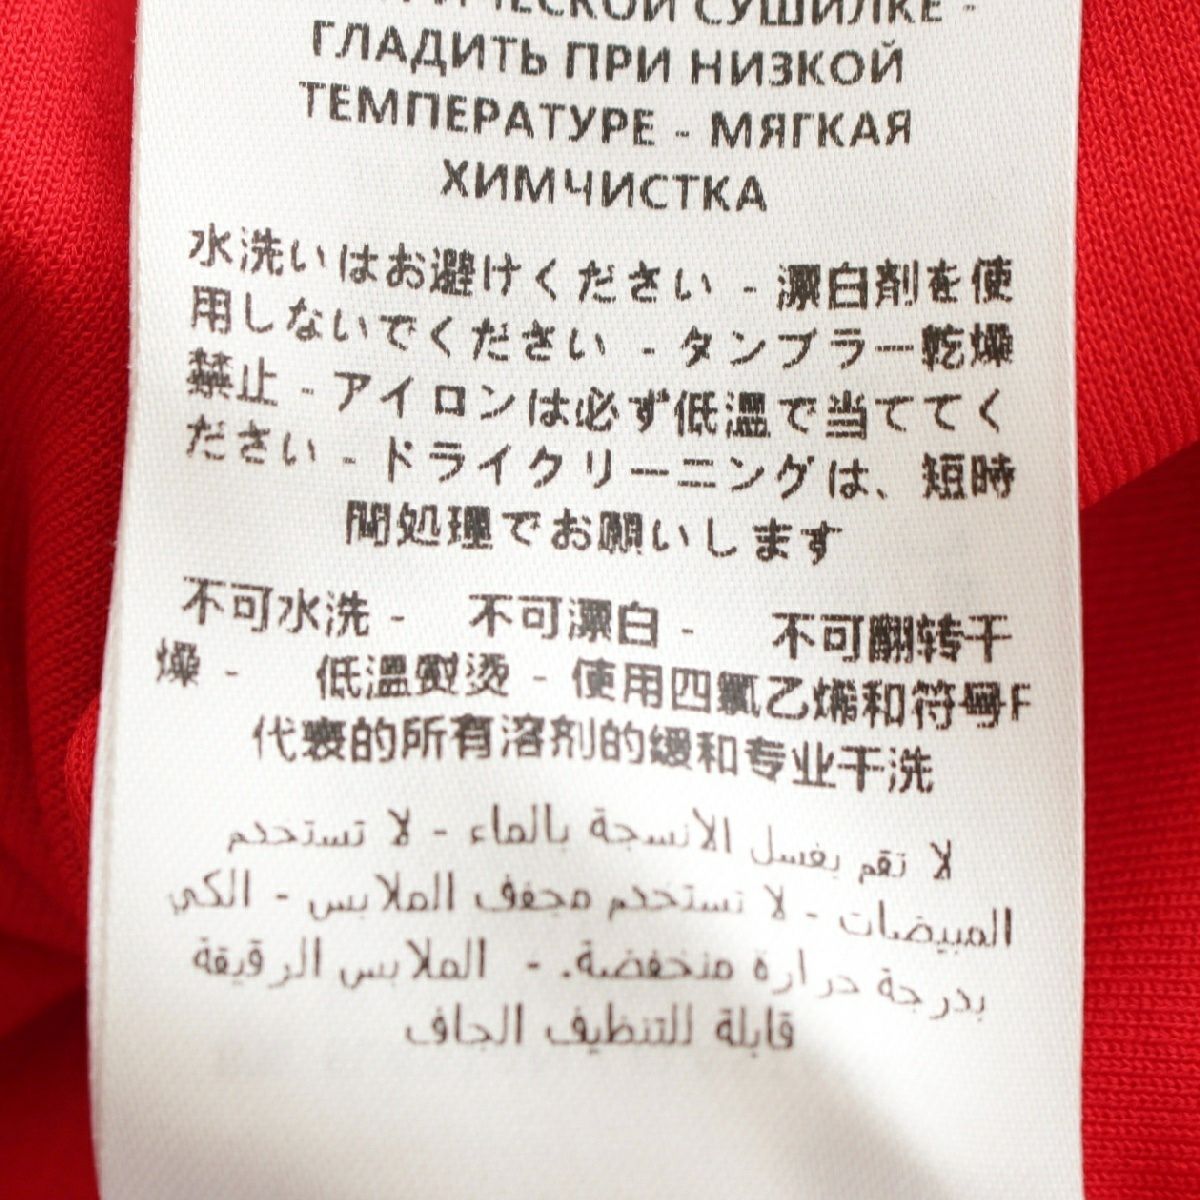 СУШИЛКЕ -
ГЛАДИТЬ ПРИ НИЗКОЙ
ТЕМПЕРАТУРЕ - МЯГКАЯ
ХИМЧИСТКА
水洗いはお避けください - 漂白剤を使
用しないでください - タンブラー乾燥
禁止 - アイロンは必ず低温で当ててく
ださい - ドライクリーニングは、短時
間処理でお願いします
不可水洗 - 不可漂白 - 不可翻转干
燥 - 低温熨烫 - 使用四氯乙烯和符号F
代表的所有溶剂的缓和专业干洗
لا تقم بغسل الأنسجة بالماء - لا تستخدم
المبيضات - لا تستخدم مجفف الملابس - الكي
بدرجة حرارة منخفضة. - الملابس الرقيقة
قابلة للتنظيف الجاف